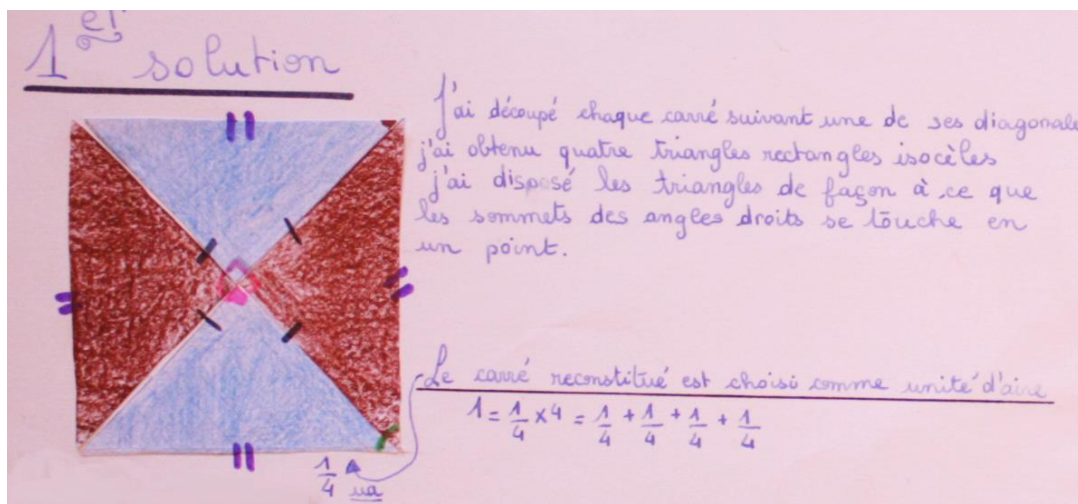 1er solution
J'ai découpé chaque carré suivant une de ses diagonale
j'ai obtenu quatre triangles rectangles isocèles
j'ai disposé les triangles de façon à ce que
les sommets des angles droits se touche en
un point.
Le carré reconstitué est choisi comme unité d'aire
1 = 1/4 × 4 = 1/4 + 1/4 + 1/4 + 1/4
1/4 ua